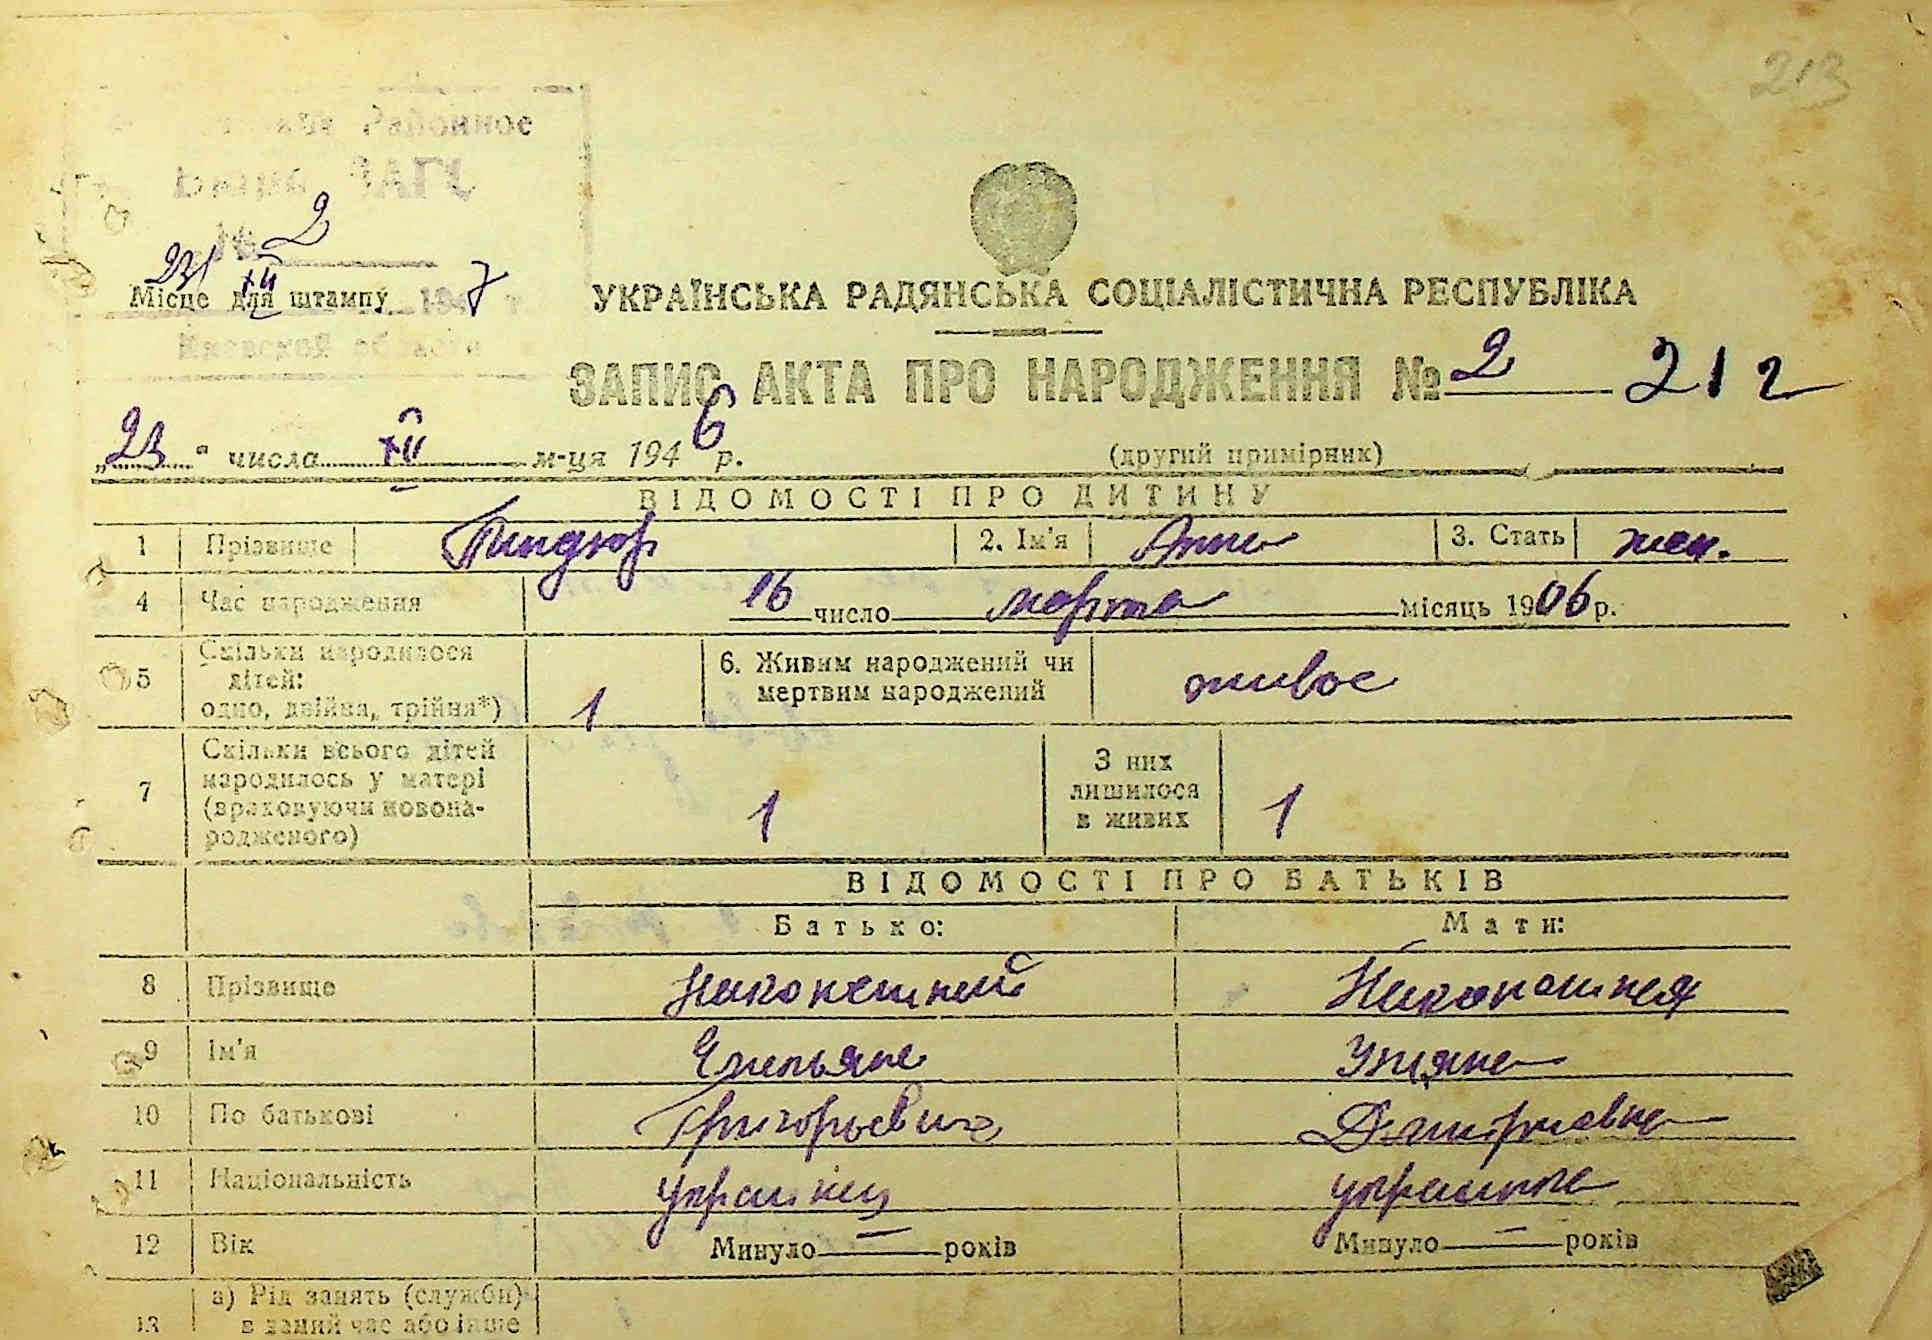 213
Районное
2
23/XII
Місце для штампу 1947 г.
Киевской области
УКРАЇНСЬКА РАДЯНСЬКА СОЦІАЛІСТИЧНА РЕСПУБЛІКА
ЗАПИС АКТА ПРО НАРОДЖЕННЯ № 2 212
„23“ числа XII м-ця 1946 р. (другий примірник)
ВІДОМОСТІ ПРО ДИТИНУ
1 Прізвище 2. Ім'я Анна 3. Стать жен.
4 Час народження 16 число марта місяць 1906 р.
5 Скільки народилося дітей: одно, двійня, трійня*) 1 6. Живим народжений чи мертвим народжений живое
7 Скільки всього дітей народилось у матері (враховуючи новонародженого) 1 З них лишилося в живих 1
ВІДОМОСТІ ПРО БАТЬКІВ
Батько: Мати:
8 Прізвище
9 Ім'я Ульяна
10 По батькові Григорьевич Дмитриевна
11 Національність украинец украинка
12 Вік Минуло — років Минуло — років
13 а) Рід занять (служби) в даний час або інше